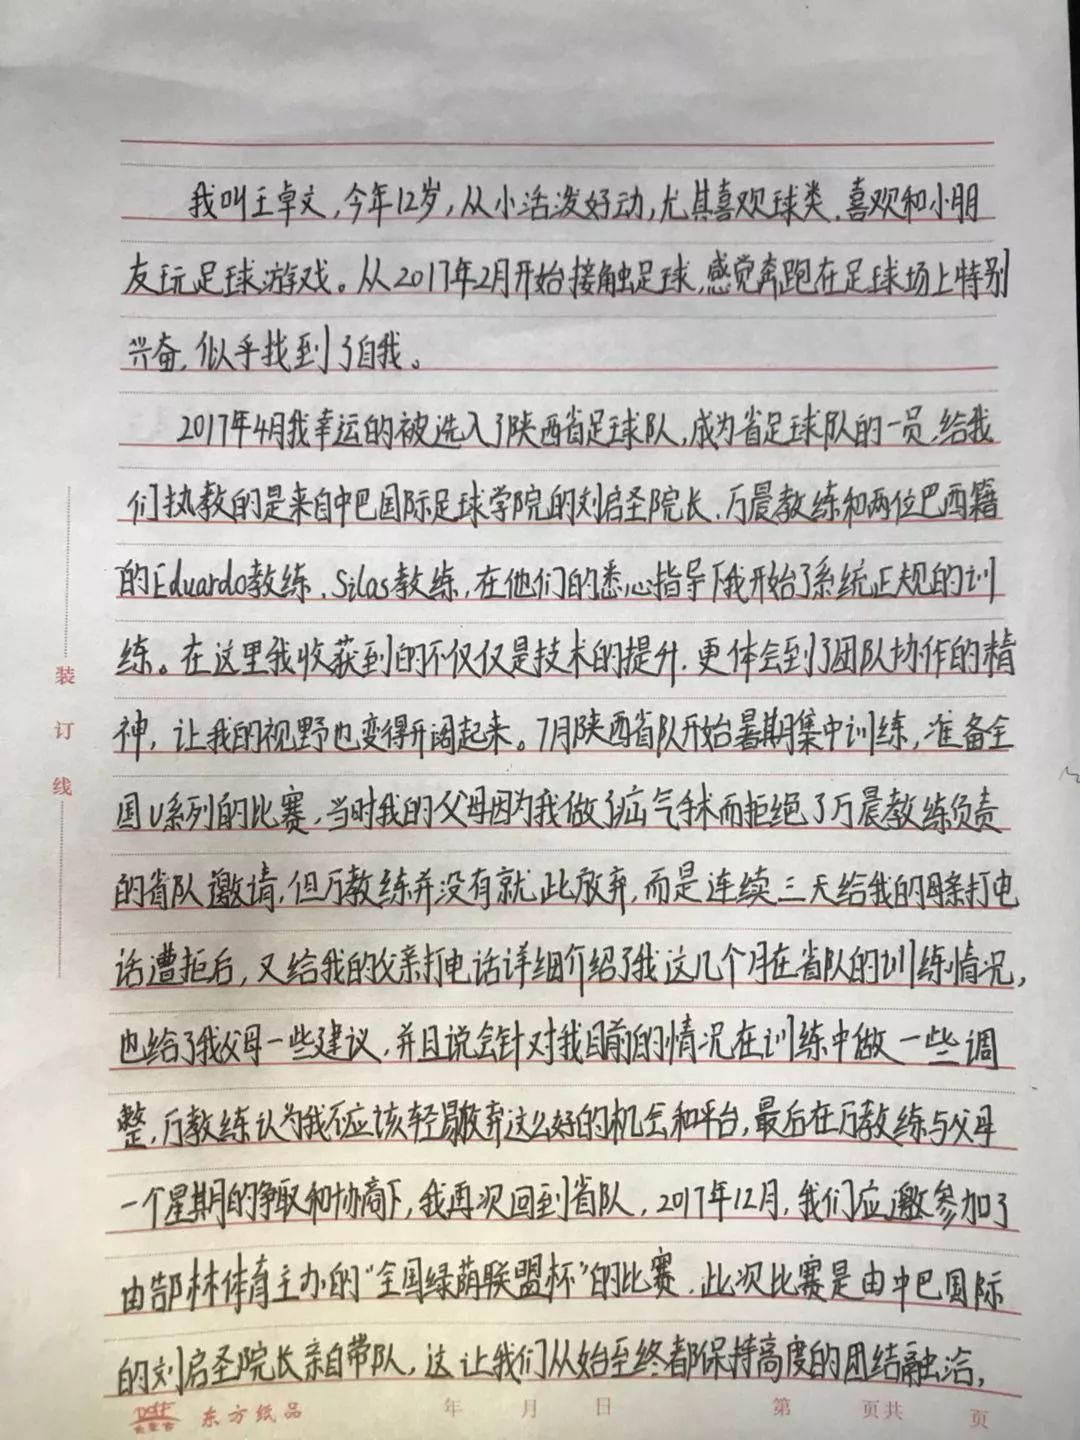 我叫王卓文,今年12岁,从小活泼好动,尤其喜欢球类.喜欢和小朋
友玩足球游戏。从2017年2月开始接触足球,感觉奔跑在足球场上特别
兴奋,似乎找到了自我。
2017年4月我幸运的被选入了陕西省足球队,成为省足球队的一员.给我
们执教的是来自中巴国际足球学院的刘启圣院长.万晨教练和两位巴西籍
的Eduardo教练.Silas教练,在他们的悉心指导下我开始了系统正规的训
练。在这里我收获到的不仅仅是技术的提升.更体会到了团队协作的精
神,让我的视野也变得开阔起来。7月陕西省队开始暑期集中训练,准备全
国U系列的比赛,当时我的父母因为我做了疝气手术而拒绝了万晨教练负责
的省队邀请,但万教练并没有就此放弃,而是连续三天给我的母亲打电
话遭拒后,又给我的父亲打电话详细介绍了我这几个月在省队的训练情况,
也给了我父母一些建议,并且说会针对我目前的情况在训练中做一些调
整,万教练认为我不应该轻易放弃这么好的机会和平台,最后在万教练与父母
一个星期的争取和协商下,我再次回到省队,2017年12月,我们应邀参加了
由郜林体育主办的“全国绿荫联盟杯”的比赛.此次比赛是由中巴国际
的刘启圣院长亲自带队,这让我们从始至终都保持高度的团结融洽,
装
订
线
东方纸品 年 月 日 第 页共 页